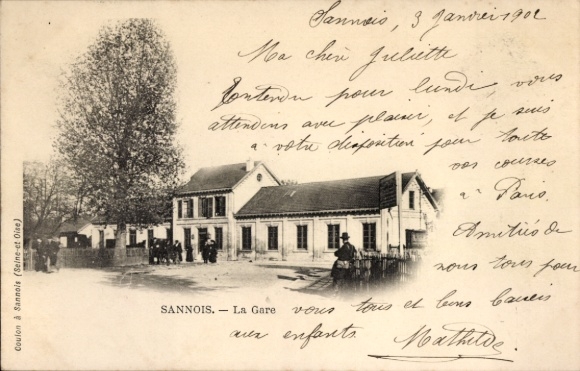 Sannois, 3 Janvier 1902
Ma chère Juliette
Entendu pour lundi, vous
attendons avec plaisir, et je suis
à votre disposition pour toute
vos courses
à Paris.
Amitiés de
nous tous pour
vous tous et bons baisers
aux enfants. Mathilde
SANNOIS. — La Gare
Coulon à Sannois (Seine-et-Oise)